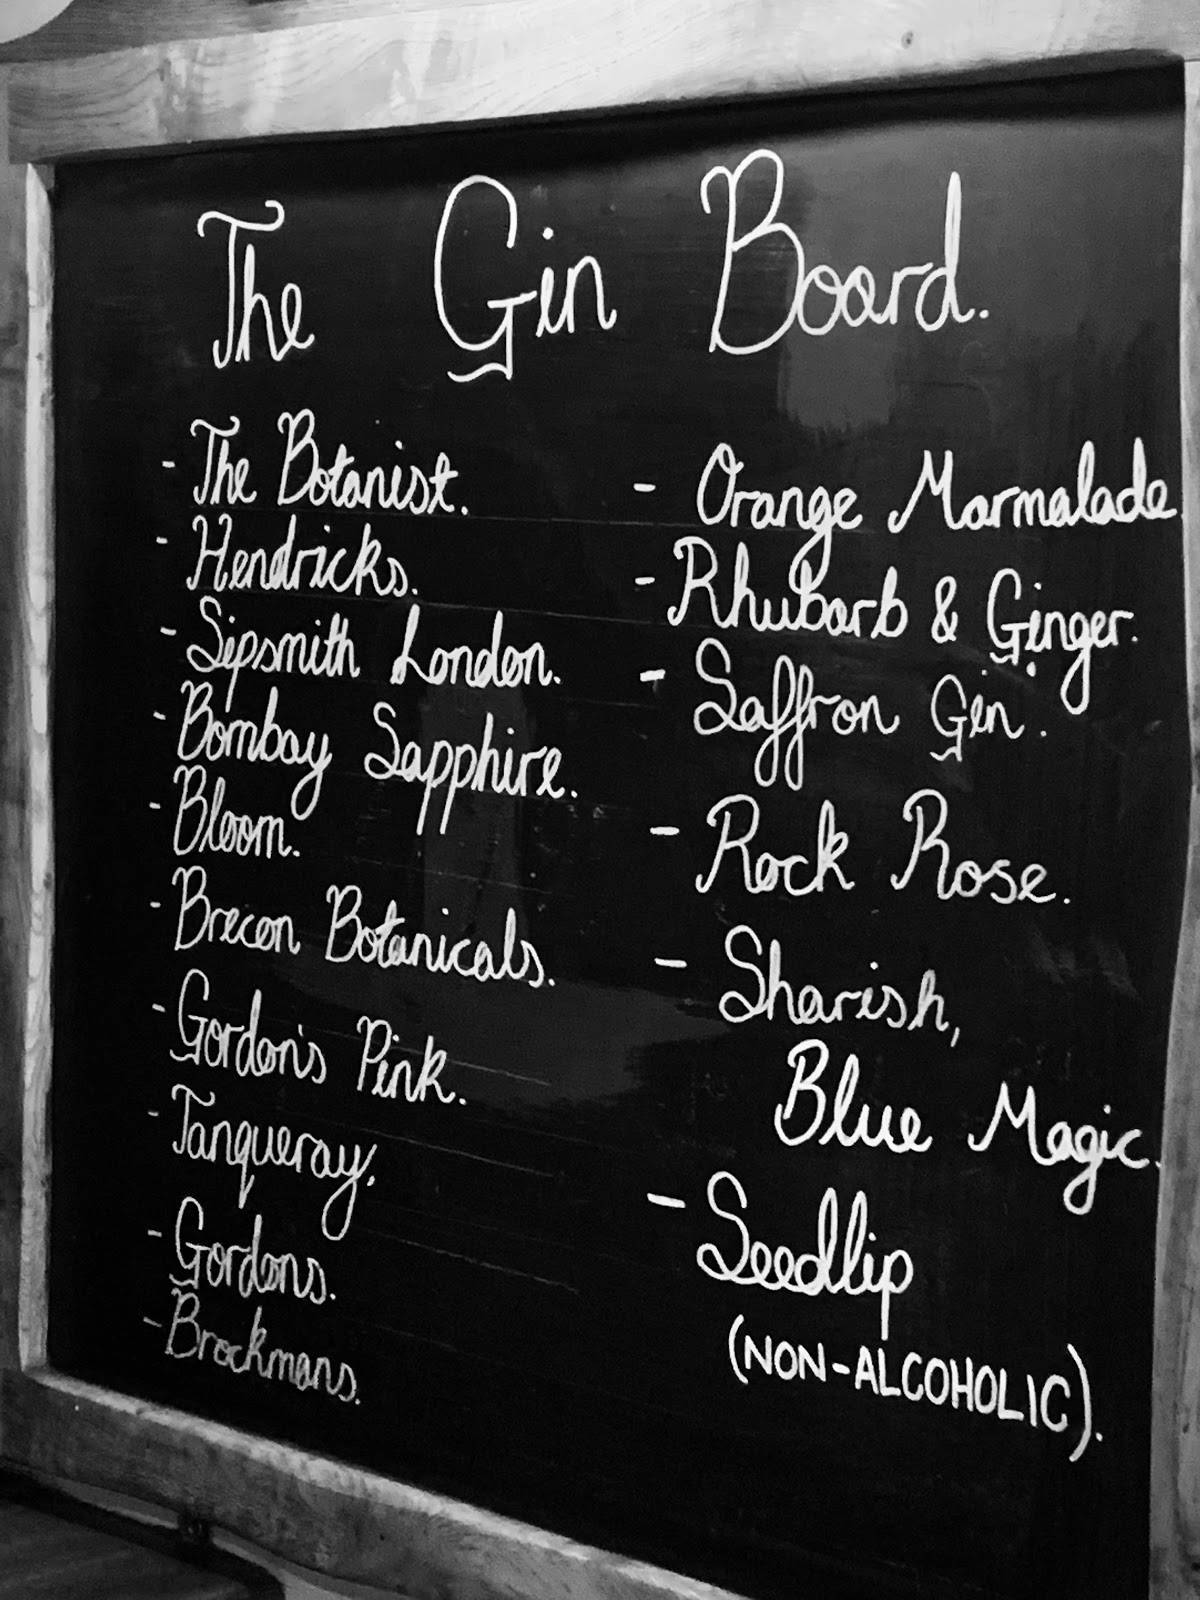 The Gin Board.
- The Botanist.
- Hendricks.
- Sipsmith London.
- Bombay Sapphire.
- Bloom.
- Brecon Botanicals.
- Gordon's Pink.
- Tanqueray.
- Gordons.
- Brockmans.
- Orange Marmalade.
- Rhubarb & Ginger.
- Saffron Gin.
- Rock Rose.
- Sharish,
Blue Magic.
- Seedlip
(NON-ALCOHOLIC).